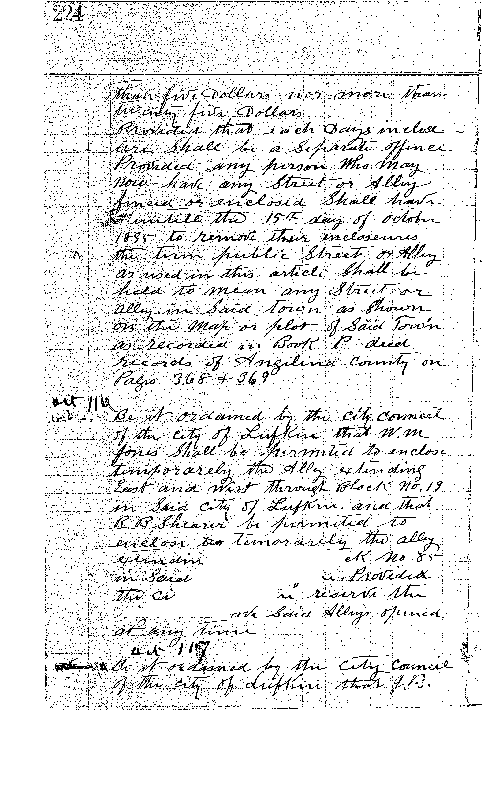 224
than five Dollars nor more than
twenty five Dollars
Provided that each Days inclos
ure Shall be a Separate offince
Provided any person Who May
now have any Street or Alley
fenced or enclosed Shall have
untill the 15th day of October
1895 to remove their enclosures
the term public Street or Alley
as used in this article Shall be
held to mean any Street or
alley in Said town as Shown
on the Map or plot of Said Town
as recorded in Book P. died
records of Angilina County on
Pages 368 + 369
art 116
Be it ordained by the city council
of the city of Lufkin that W.M.
Jones Shall be permitted to enclose
temporarely the Alley extending
East and West through Block No. 19
in Said city of Lufkin. and that
R B Shearer be permitted to
enclose temorarily the alley
extendin ck No 85
in Said Provided
the Ci reserve the
Said Alleys opened
at any time
art 117
Be it ordained by the City Council
of the city of Lufkin that J.B.